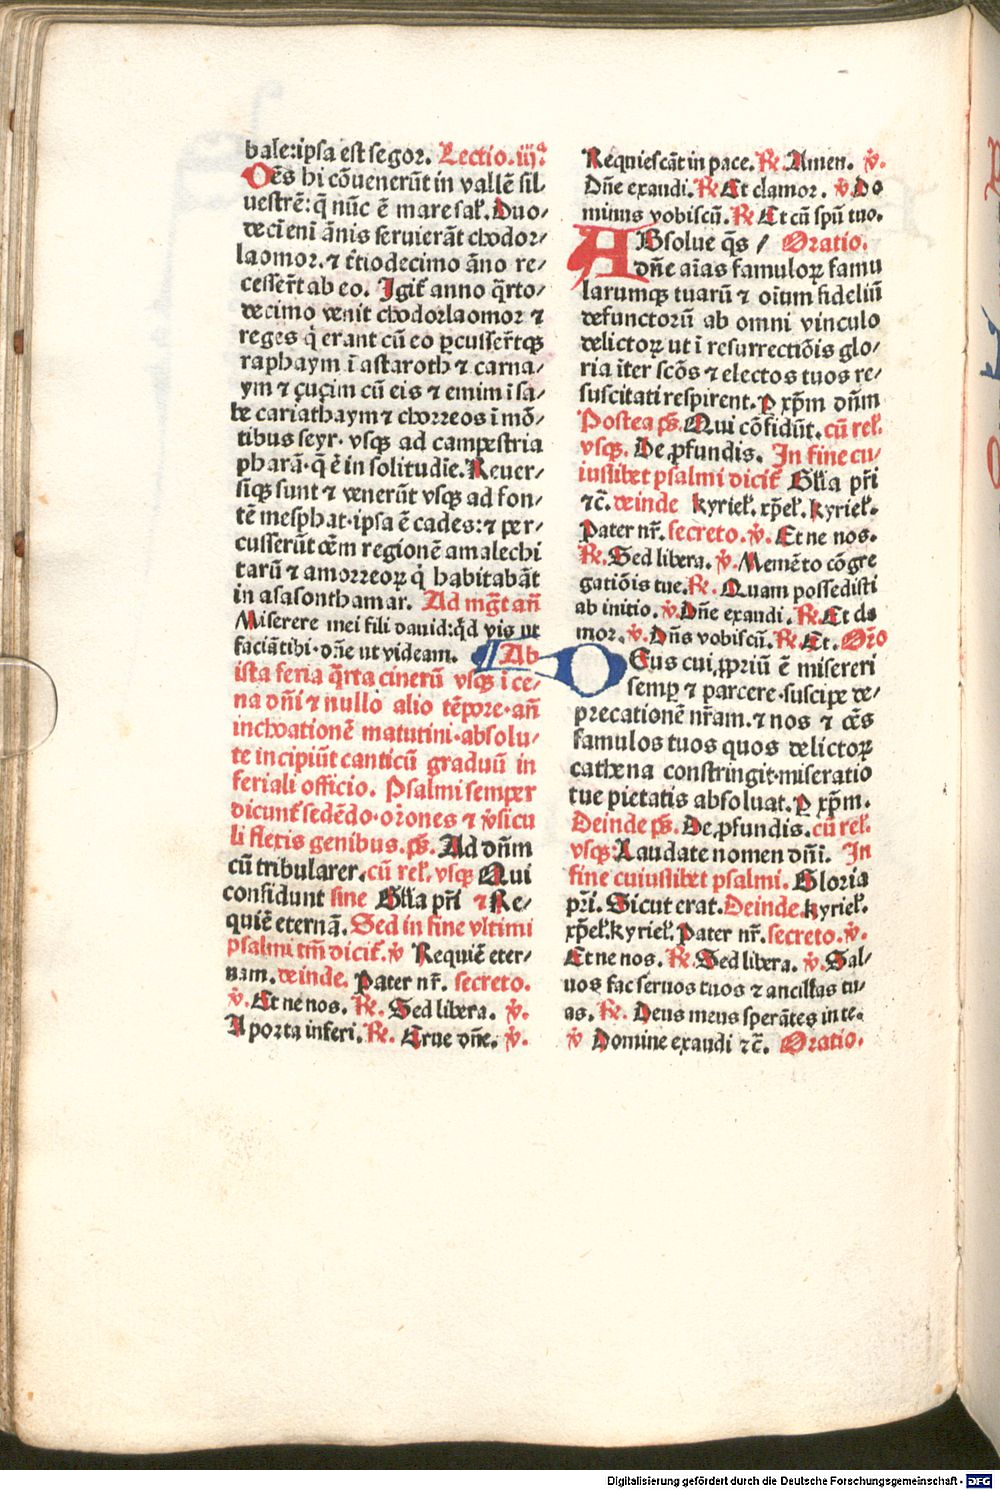 bale:ipsa est segor. Lectio.iijª
Oēs hi cōuenerūt in vallē sil
uestrē: q̄ nūc ē mare saĺ. Duo/
decī eni ānis seruierāt chodor/
laomor. ⁊ t̄tiodecimo āno re/
cesser̄t ab eo. Igit̄ anno q̄rto/
decimo venit chodorlaomor ⁊
reges q̇ erant cū eo ꝑcusser̄tqꝫ
raphaym ī astaroth ⁊ carna/
ym ⁊ çuçim cū eis ⁊ emim ī sa/
be cariathaym ⁊ chorreos ī mō/
tibus seyr. vsqꝫ ad campestria
pharā. q̄ ē in solitudīe. Reuer/
siqꝫ sunt ⁊ venerūt vsqꝫ ad fon/
tē mesphat. ipsa ē cades: ⁊ per/
cusserūt oēm regionē amalechi
tarū ⁊ amorreoꝝ q̇ habitabāt
in asasonthamar. Ad mḡt an̄
Miserere mei fili dauid: qd̄ vis ut
faciā tibi. dn̄e ut videam. Ab
ista feria q̄rta cinerū vsqꝫ ī ce/
na dn̄i ⁊ nullo alio tēpore. an̄
inchoationē matutini. absolu/
te incipiūt canticū graduū in
feriali officio. Psalmi semper
dicunt̄ sedēdo. or̄ones ⁊ v̇sicu
li flexis genibus. ps̄. Ad dn̄m
cū tribularer. cū reĺ. vsqꝫ Qui
confidunt sine Gĺia pr̄i ⁊ Re/
quiē eternā. Sed in fine vltimi
psalmi tm̄ dicit̄. ℣ Requiē eter/
nam. deinde. Pater nr̄. secreto.
℣. Et ne nos. ℞. Sed libera. ℣.
A porta inferi. ℞. Erue dn̄e. ℣.
Requiescāt in pace. ℞. Amen. ℣.
Dn̄e exaudi. ℞ Et clamor. ℣. Do
minus vobiscū. ℞ Et cū spū tuo.
ABsolue q̄s / Oratio.
dn̄e aīas famuloꝝ famu
larumqꝫ tuarū ⁊ oīum fideliū
defunctorū ab omni vinculo
delictoꝝ ut ī resurrectiōis glo/
ria iter scōs ⁊ electos tuos re/
suscitati respirent. ꝑ xp̄m dn̄m
Postea ps̄. Qui cōfidūt. cū reĺ.
vsqꝫ. De ꝓfundis. In fine cu/
iuslibet psalmi dicit̄ Gĺia pr̄i
⁊c̄. deinde kyrieĺ. xp̄eĺ. kyrieĺ.
Pater nr̄. secreto. ℣. Et ne nos.
℞. Sed libera. ℣. Memēto cōgre
gatiōis tue. ℞. Quam possedisti
ab initio. ℣. Dn̄e exaudi. ℞. Et cla
mor. ℣. Dn̄s vobiscū. ℞ Et. Or̄o
DEus cui ꝓpriū ē misereri
semꝑ ⁊ parcere. suscipe de/
precationē nr̄am. ⁊ nos ⁊ oēs
famulos tuos quos delictoꝝ
cathena constringit. miseratio
tue pietatis absoluat. ꝑ xp̄m.
Deinde ps̄. De ꝓfundis. cū reĺ.
vsqꝫ: Laudate nomen dn̄i. In
fine cuiuslibet psalmi. Gloria
pr̄i. Sicut erat. Deinde. kyrieĺ.
xp̄eĺ. kyrieĺ. Pater nr̄. secreto. ℣.
Et ne nos. ℞. Sed libera. ℣. Sal/
uos fac seruos tuos ⁊ ancillas tu/
as. ℞. Deus meus sperātes in te.
℣ Domine exaudi ⁊c̄. Oratio.
Digitalisierung gefördert durch die Deutsche Forschungsgemeinschaft - DFG